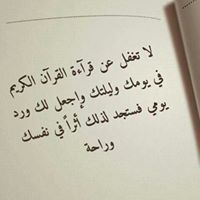 لا تغفل عن قرآءة القرآن الكريم
في يومك وليلتك وإجعل لك ورد
يومي فستجد لذلك أثراً في نفسك
وراحة